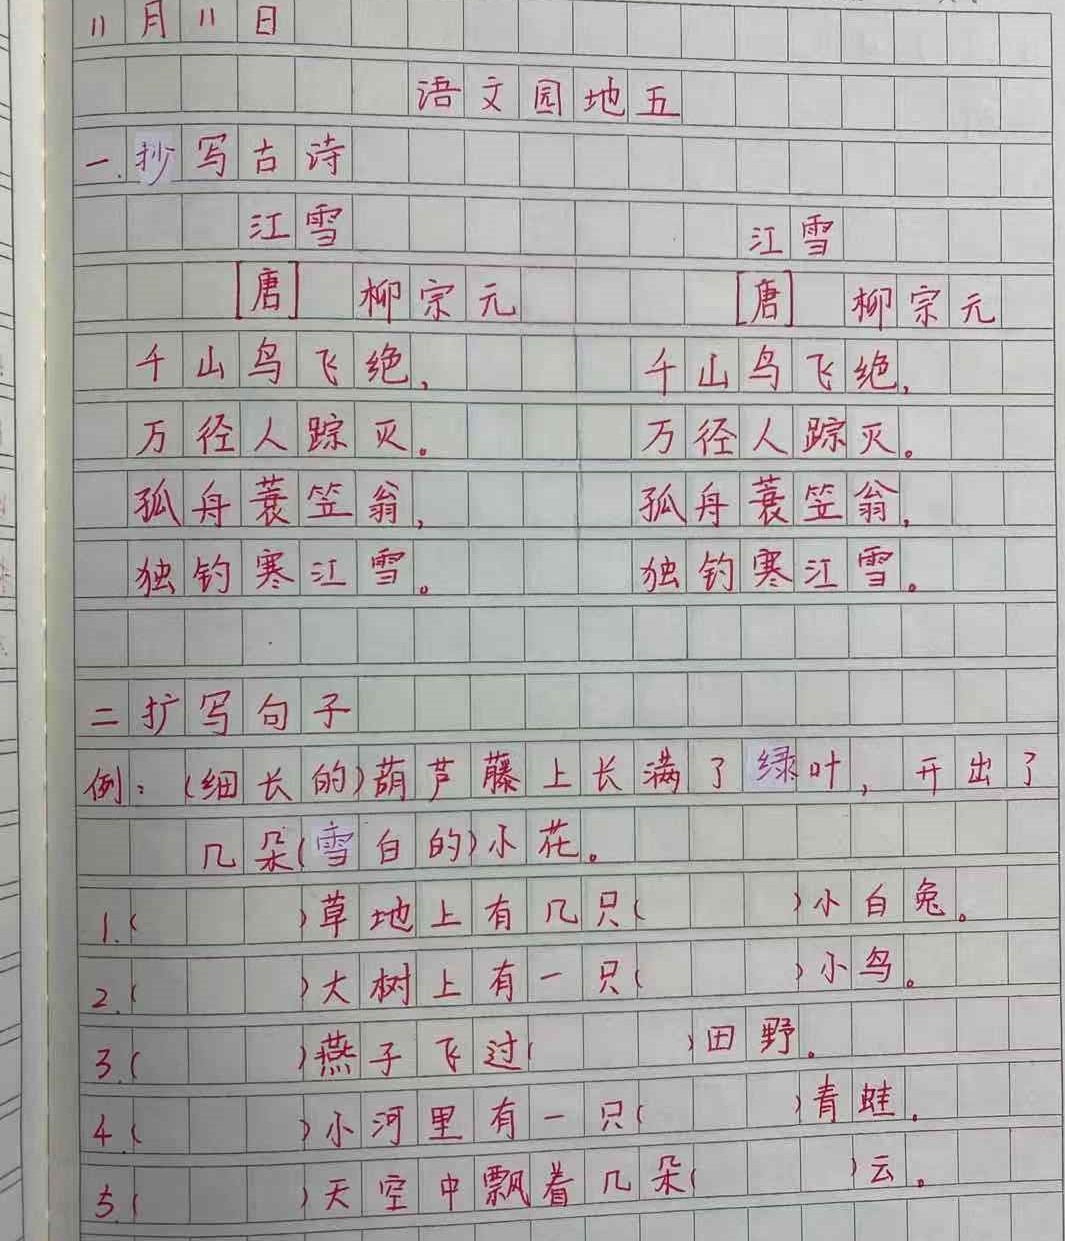 11月11日
语文园地五
一.抄写古诗
江雪 江雪
[唐] 柳宗元 [唐] 柳宗元
千山鸟飞绝, 千山鸟飞绝,
万径人踪灭。 万径人踪灭。
孤舟蓑笠翁, 孤舟蓑笠翁,
独钓寒江雪。 独钓寒江雪。
二扩写句子
例:(细长的)葫芦藤上长满了绿叶,开出了
几朵(雪白的)小花。
1.( )草地上有几只( )小白兔。
2.( )大树上有一只( )小鸟。
3.( )燕子飞过( )田野。
4.( )小河里有一只( )青蛙。
5.( )天空中飘着几朵( )云。